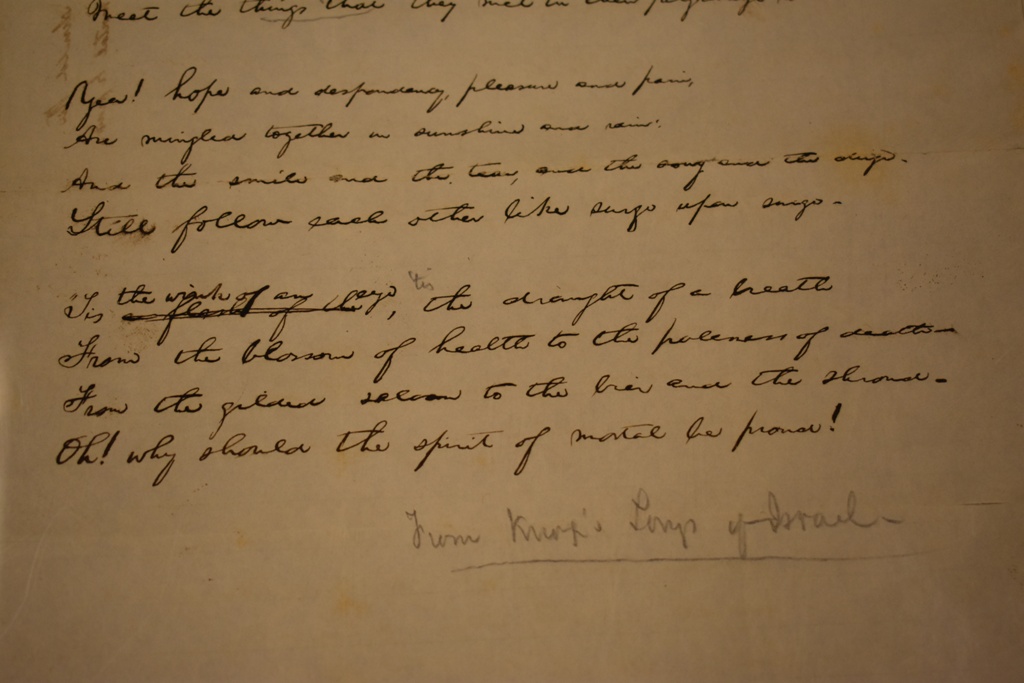 Meet the things that they met in their pilgrimage
Yea! hope and despondency, pleasure and pain,
Are mingled together in sunshine and rain:
And the smile and the tear, and the song and the dirge.
Still follow each other like surge upon surge-
'Tis the wink of an eye, 'tis the draught of a breath
a flash of the
From the blossom of health to the paleness of death-
From the gilded saloon to the bier and the shroud-
Oh! why should the spirit of mortal be proud!
From Knox's Songs of Israel-